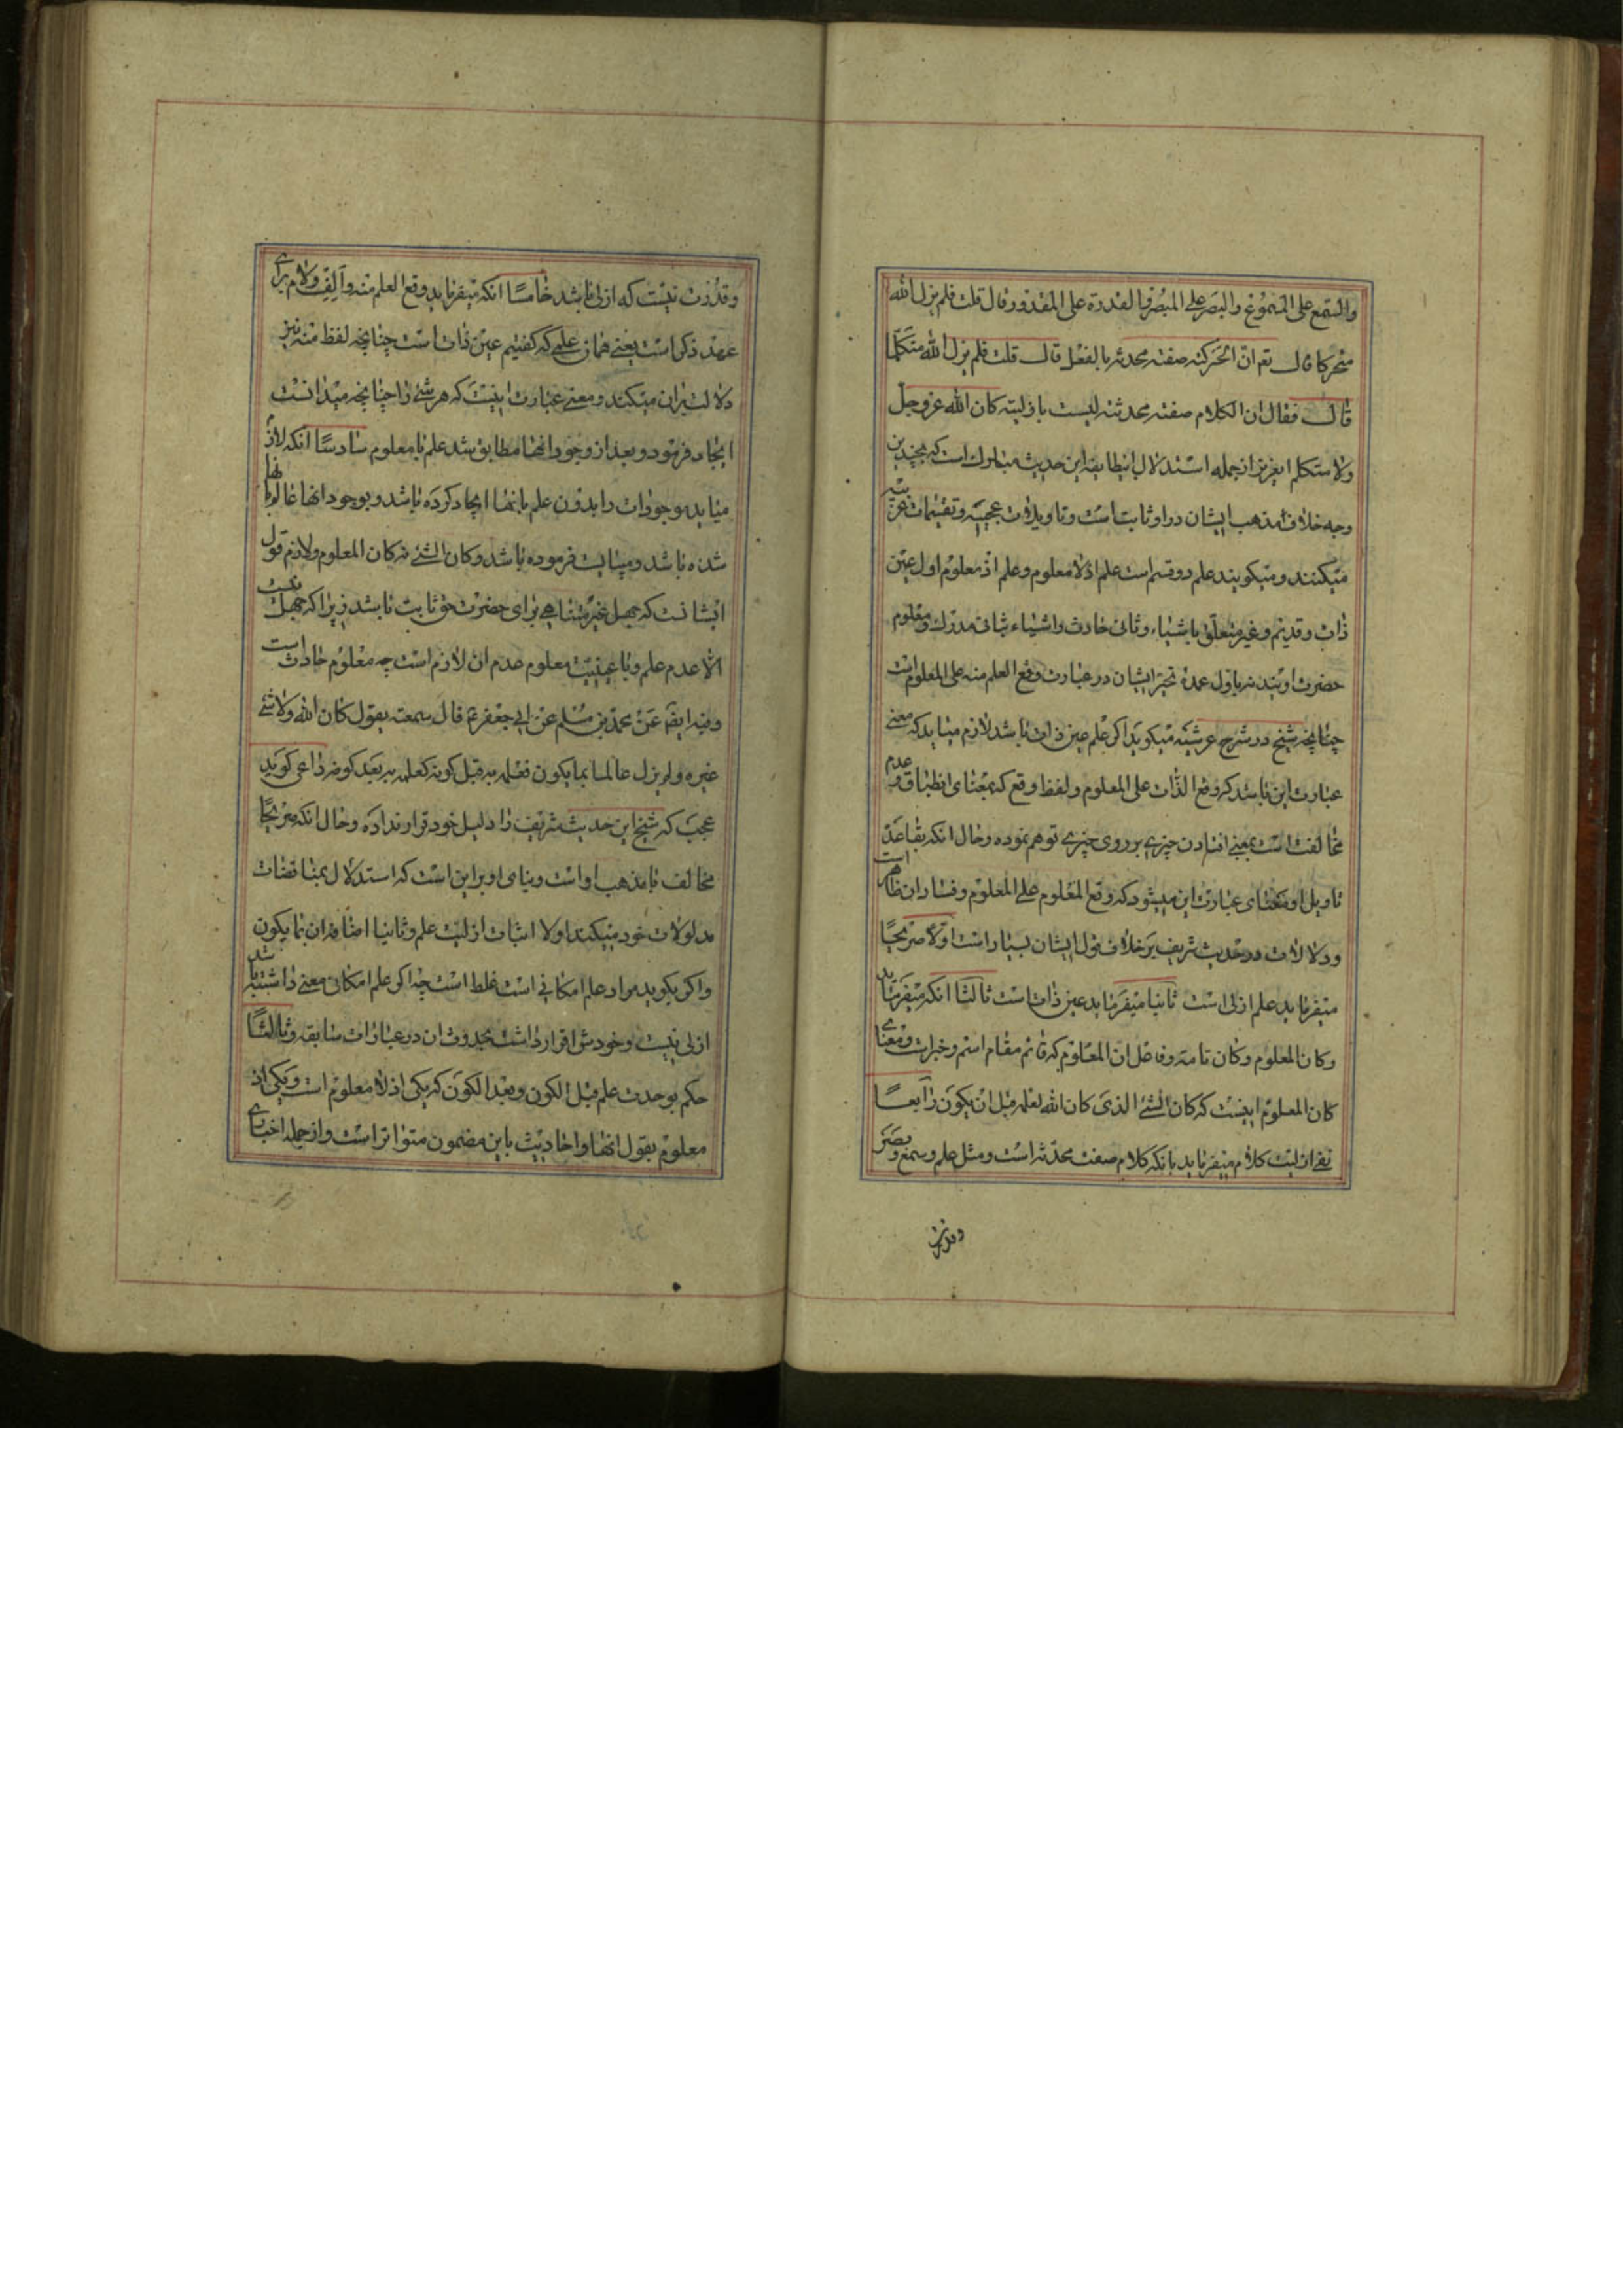 والسمع علی المسموع والبصر علی المبصر والقدرة علی المقدور قال قلت فلم یزل الله
متحرکا قال تع ان الحرکة صفته محدثه بالفعل قال قلت فلم یزل الله متکلما
قال فقال ان الکلام صفته محدثته لیست بازلیته کان الله عزوجل
ولا متکلم ایعزیز از جمله استدلال اینطایفه این حدیث مبارک است که بچندین
وجه خلاف مذهب ایشان در او ثابت است و تاویلات عجیبه و تقسیمات غریبه
میکنند و میگویند علم دو قسم است علم اذ لا معلوم و علم اذ معلوم اول عین
ذات و قدیم و غیر متعلق باشیاء و ثانی حادث واشیاء بثانی مدرک و معلوم
حضرت اویند نه باول عمده تحیر ایشان در عبارت وقع العلم منه علی المعلوم است
چنانچه شیخ در شرح عرشیه میگوید اگر علم عین ذات باشد لازم میاید که معنی
عبارت این باشد که وقع الذات علی المعلوم و لفظ وقع که بمعنای انطباق و عدم
مخالفت است بمعنی افتادن چیزی بر روی چیزی توهم نموده و حال انکه بقاعده
تاویل او معنای عبارت این میشود که وقع المعلوم علی المعلوم و فساد ان ظاهر است
و دلالات در حدیث شریف بر خلاف قول ایشان بسیار است اولا صریحا
میفرماید علم ازلی است ثانیا میفرماید عین ذات است ثالثا انکه میفرماید
وکان المعلوم و کان تامه و فاعل ان المعلوم که قائم مقام اسم و خبر است و معنای
کان المعلوم اینست که کان الشئ الذی کان الله یعلمه قبل ان یکون رابعا
نفی ازلیت کلام میفرماید بانکه کلام صفت محدثه است و مثل علم و سمع و بصر
وقدرت
وقدرت نیست که ازلی باشد خامسا انکه میفرماید وقع العلم منه والف ولام برای
عهد ذکری است یعنی همان علمی که گفتیم عین ذات است چنانچه لفظ منه نیز
دلالت بران میکند و معنی عبارت اینست که هر شئ را چنانچه میدانست
ایجاد فرمود و بعد از وجود انها مطابق شد علم با معلوم سادسا انکه لازم
میاید موجودات را بدون علم بانها ایجاد کرده باشد و بوجود انها عالم بانها
شده باشد و میبایست فرموده باشد وکان الشئ نه کان المعلوم ولازم قول
ایشانست که جهل غیر متناهی برای حضرت حق ثابت باشد زیرا که جهل نیست
الا عدم علم و با عینیت معلوم عدم ان لازم است چه معلوم حادث است
وفیه ایضا عن محمد بن مسلم عن ابی جعفر ع قال سمعته یقول کان الله ولا شئ
غیره ولم یزل عالما بما یکون فعلمه به قبل کونه کعلمه به بعد کونه داعی گوید
عجب که شیخ این حدیث شریف را دلیل خود قرار نداده و حال انکه صریحا
مخالف با مذهب او است و بنای او بر این است که استدلال بمناقضات
مدلولات خود میکند اولا اثبات ازلیت علم و ثانیا اضافه ان بما یکون
و اگر بگوید مراد علم امکانی است غلط است چه اگر علم امکانی معنی داشته باشد
ازلی نیست و خودش اقرار داشت بحدوث ان در عبارات سابقه و ثالثا
حکم بوحدت علم قبل الکون و بعد الکون که یکی اذ لا معلوم است و یکی اذ
معلوم بقول انها و احادیث باین مضمون متواتر است و از جمله اخباری